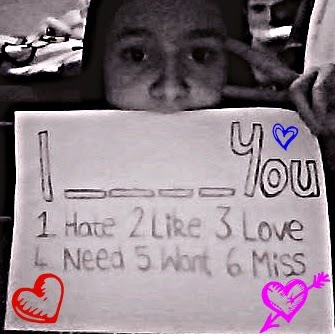 I ____ You
1 Hate 2 Like 3 Love
4 Need 5 Want 6 Miss